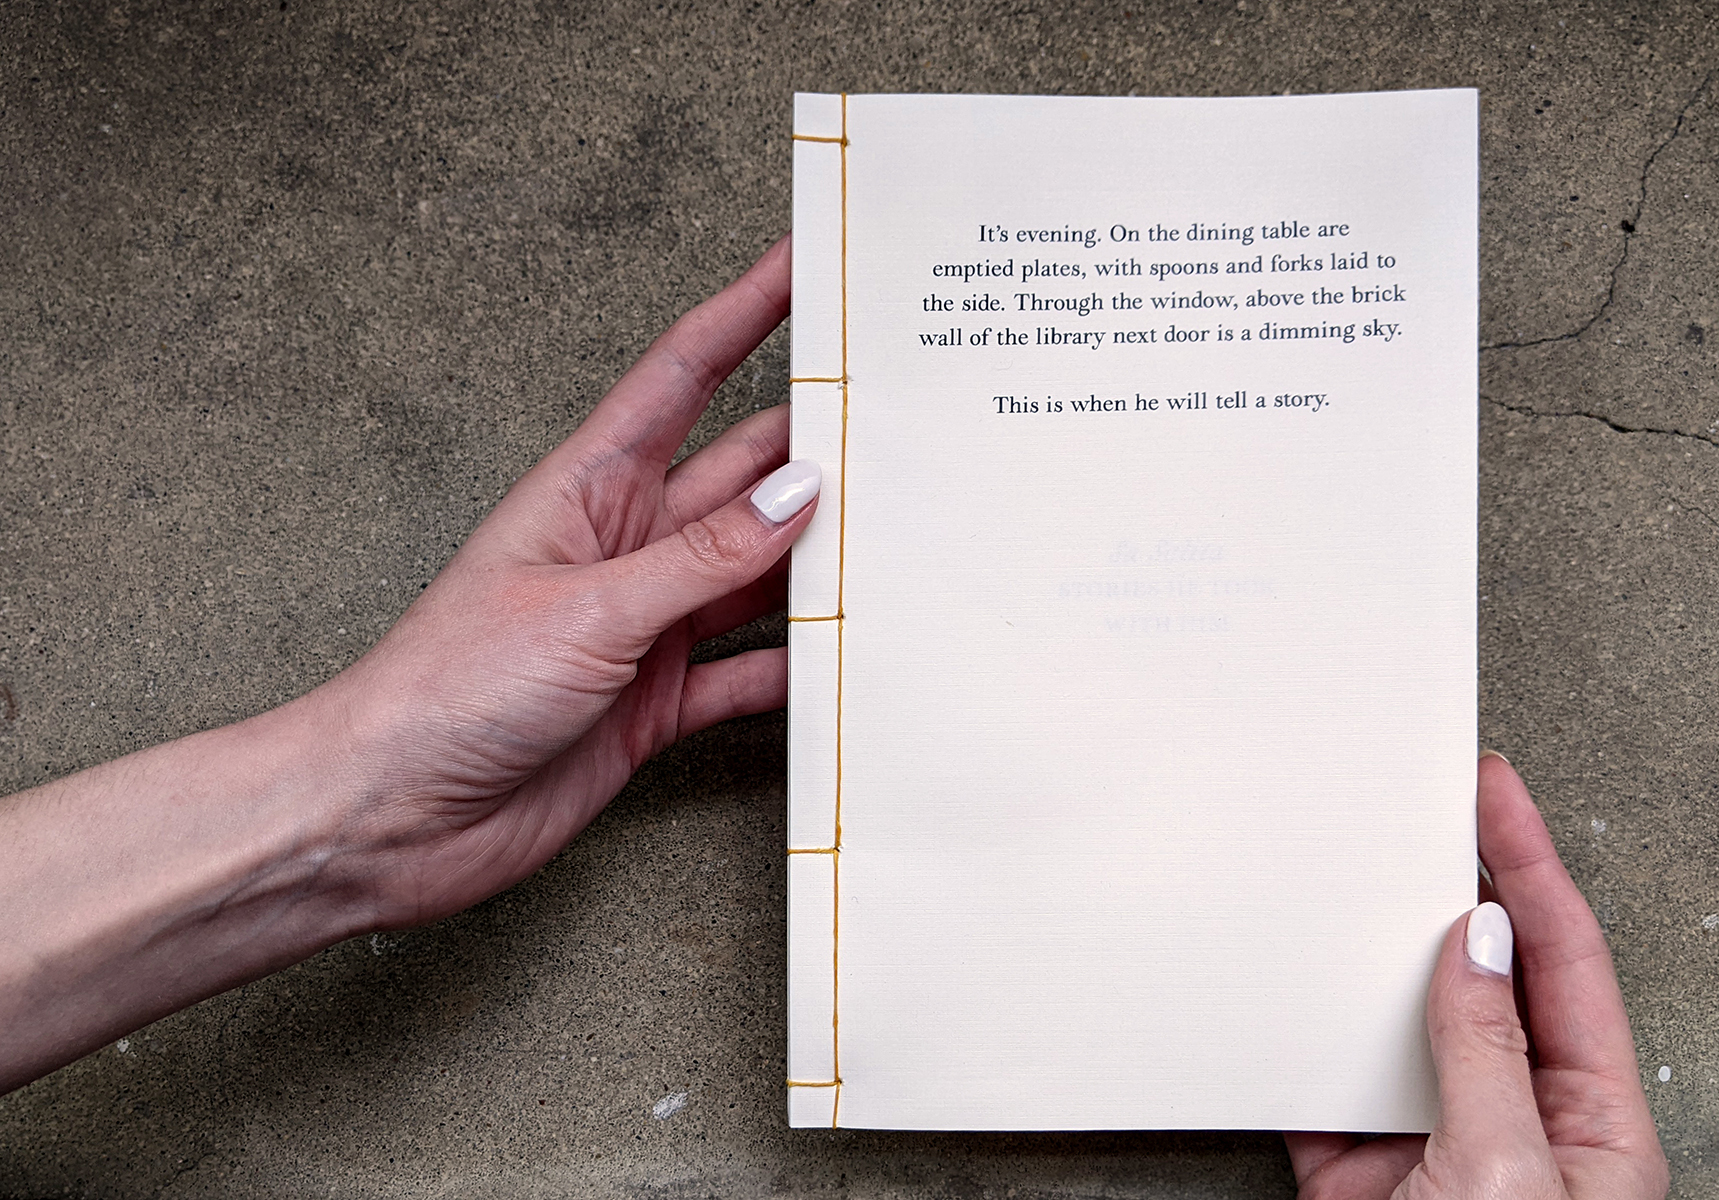 It’s evening. On the dining table are
emptied plates, with spoons and forks laid to
the side. Through the window, above the brick
wall of the library next door is a dimming sky.
This is when he will tell a story.
STORIES HE TOOK
WITH HIM